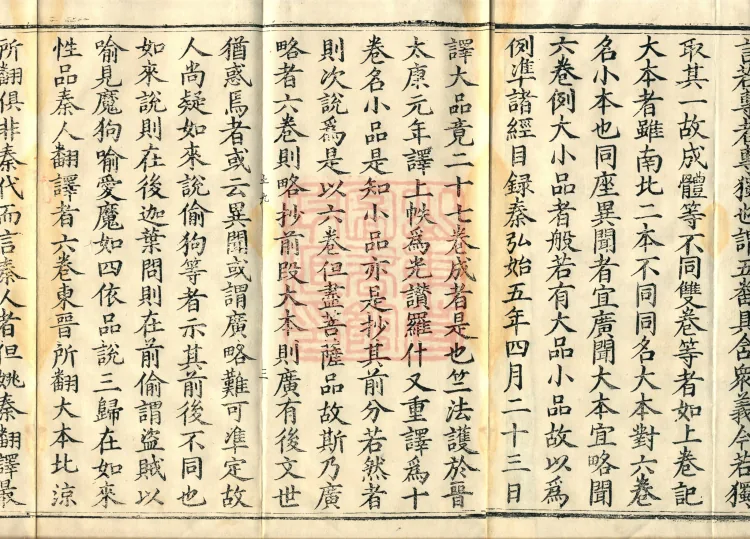 言若專者專獨也謂五番具含衆義今若獨
取其一故成體等不同雙卷等者如上卷記
大本者雖南北二本不同同名大本對六卷
名小本也同座異聞者宜廣聞大本宜略聞
六卷例大小品者般若有大品小品故以爲
例準諸經目録秦弘始五年四月二十三日
譯大品竟二十七卷成者是也竺法護於晉
太康元年譯上帙爲光讚羅什又重譯爲十
卷名小品是知小品亦是抄其前分若然者
則次説爲是以六卷但盡菩薩品故斯乃廣
略者六卷則略抄前段大本則廣有後文世
猶惑焉者或云異聞或謂廣略難可準定故
人尚疑如來説偷狗等者示其前後不同也
如來説則在後迦葉問則在前偷謂盜賊以
喻見魔狗喻愛魔如四依品説三歸在如來
性品秦人翻譯者六卷東晉所翻大本北涼
所翻俱非秦代而言秦人者但姚秦翻譯最
三